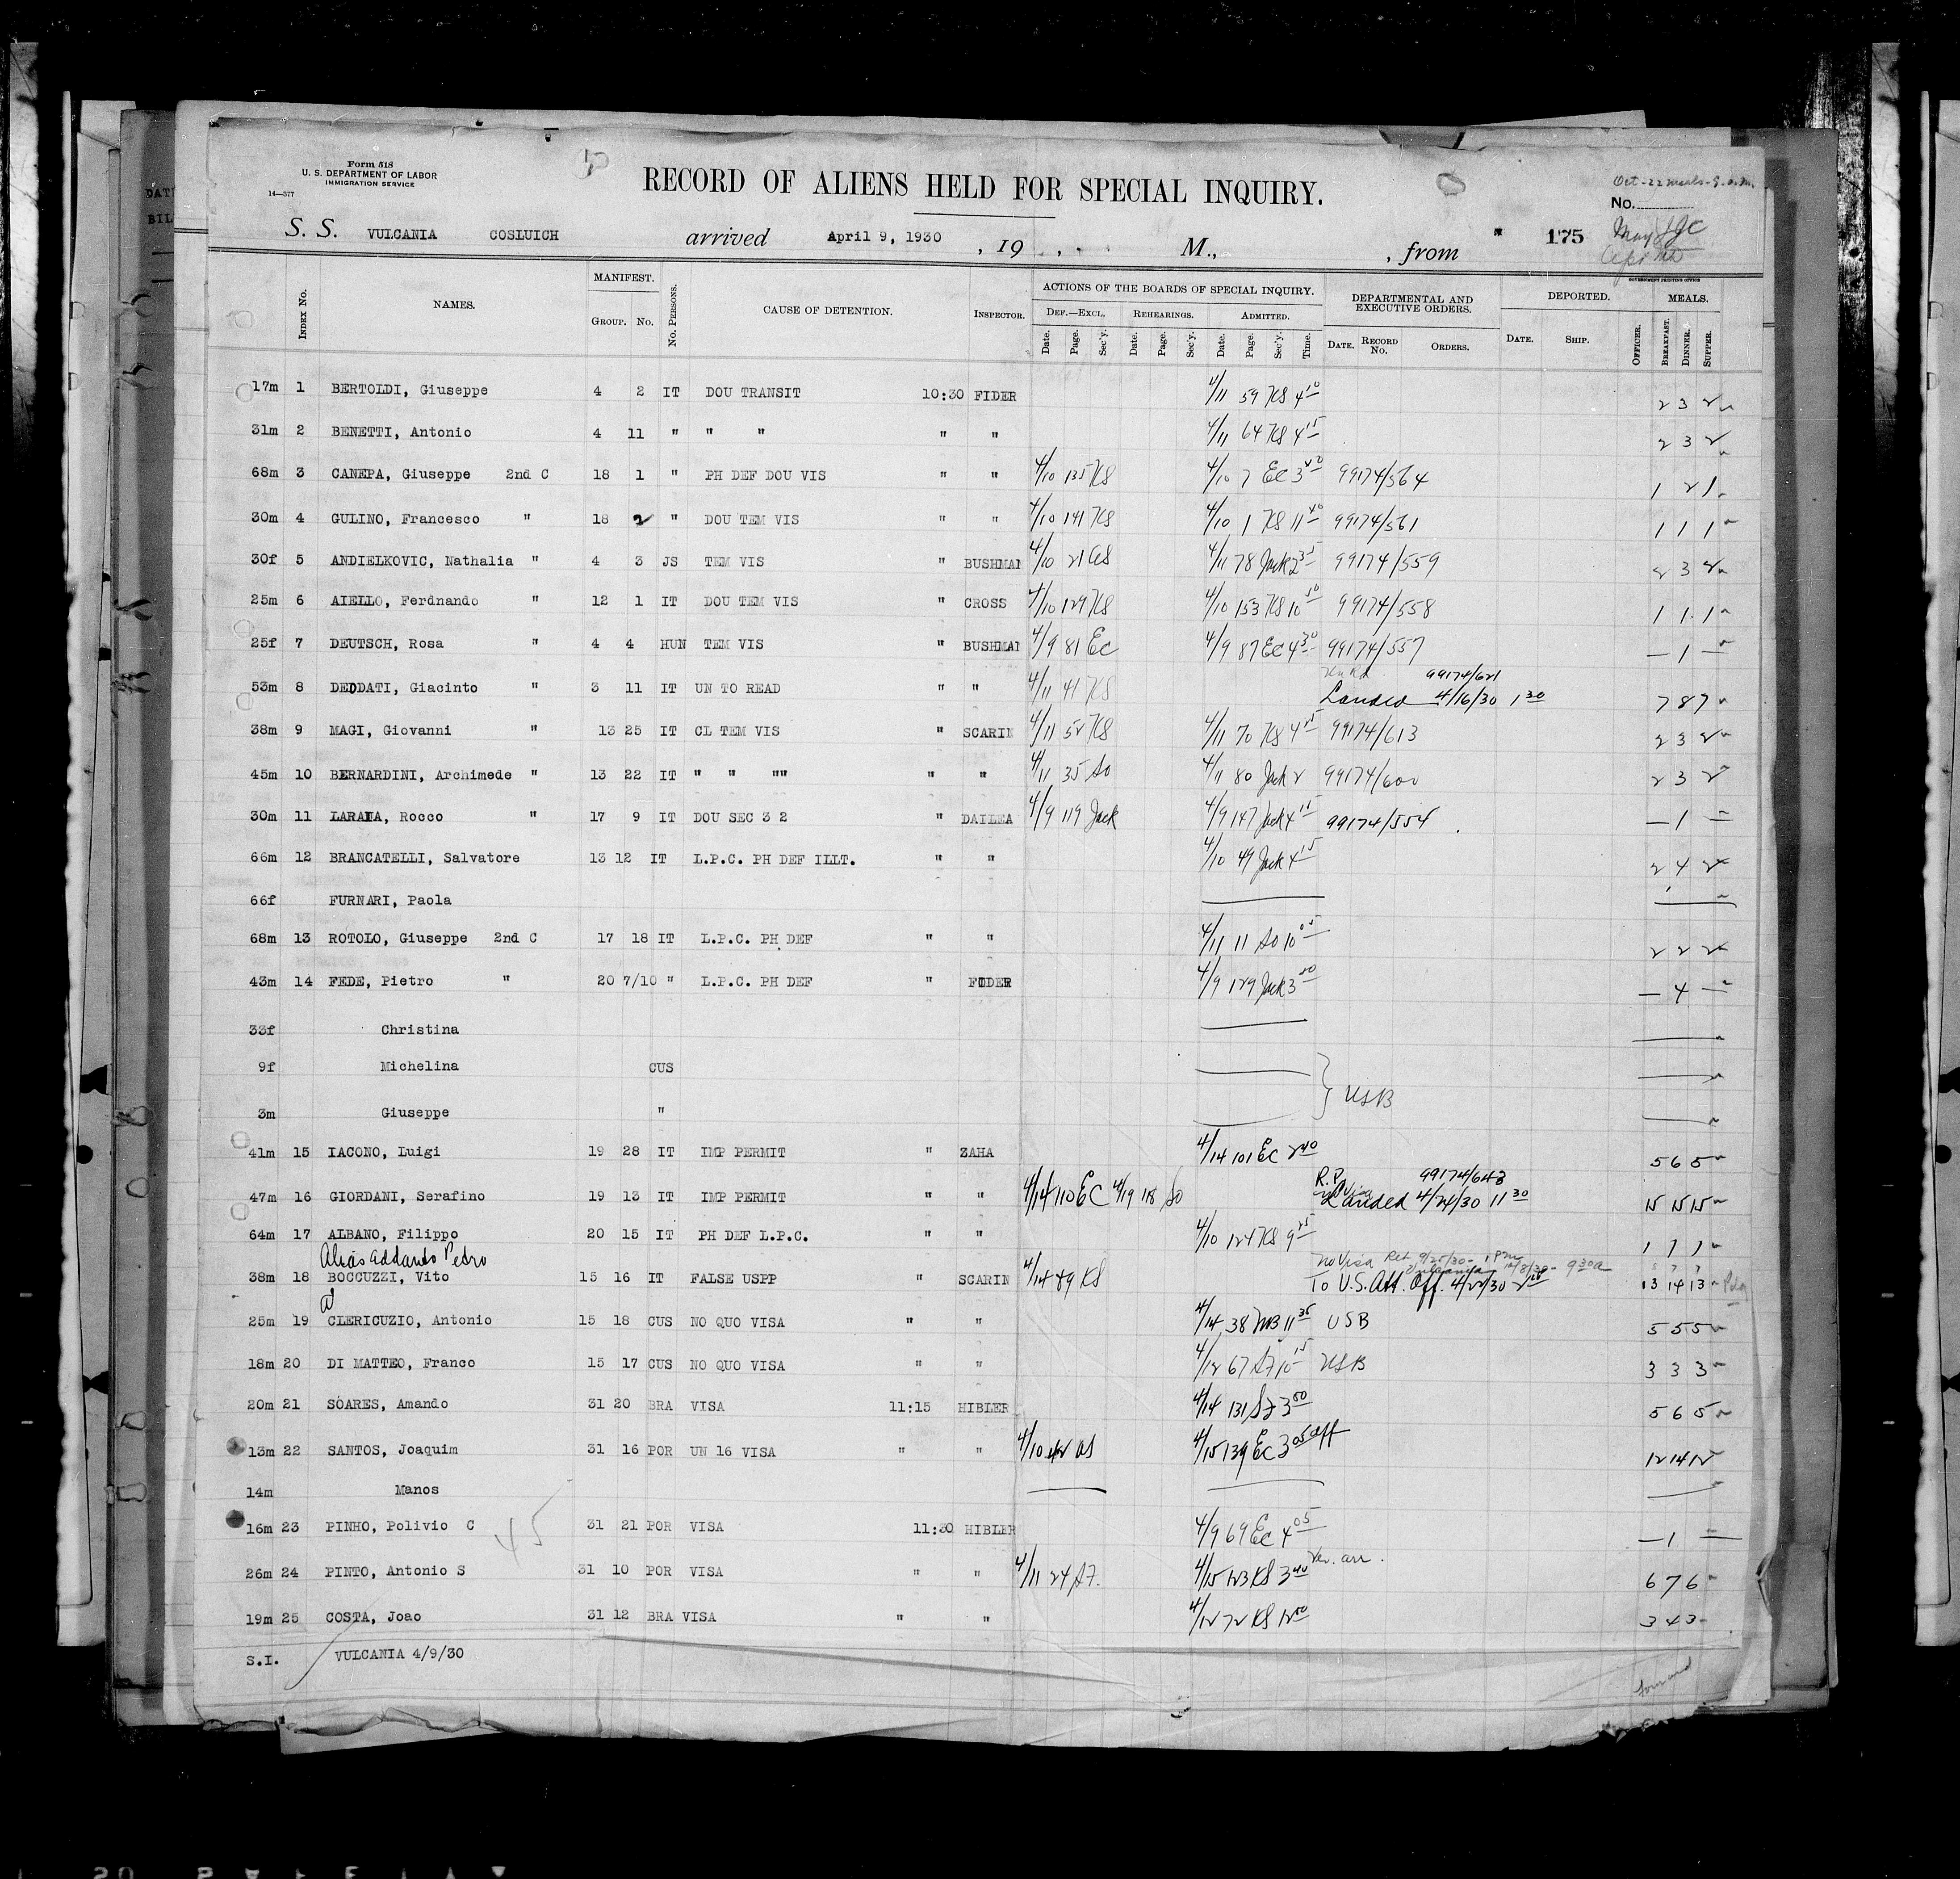 Form 518
U. S. DEPARTMENT OF LABOR
IMMIGRATION SERVICE
14—377
RECORD OF ALIENS HELD FOR SPECIAL INQUIRY.
Oct-22 meals-
No.
S. S. VULCANIA COSLUICH arrived April 9, 1930 , 19 , M., , from " 175
GOVERNMENT PRINTING OFFICE
INDEX No. NAMES. MANIFEST. GROUP. No. No. PERSONS. CAUSE OF DETENTION. INSPECTOR. ACTIONS OF THE BOARDS OF SPECIAL INQUIRY. DEPARTMENTAL AND EXECUTIVE ORDERS. DEPORTED. MEALS.
DEF.—EXCL. REHEARINGS. ADMITTED.
Date. Page. Sec'y. Date. Page. Sec'y. Date. Page. Sec'y. Time. DATE. RECORD No. ORDERS. DATE. SHIP. OFFICER. BREAKFAST. DINNER. SUPPER.
17m 1 BERTOLDI, Giuseppe 4 2 IT DOU TRANSIT 10:30 FIDER 4/11 59 KS 4 10 2 3 2
31m 2 BENETTI, Antonio 4 11 " " " " " 4/11 64 KS 4 15 2 3 2
68m 3 CANEPA, Giuseppe 2nd C 18 1 " PH DEF DOU VIS " " 4/10 135 KS 4/10 7 EC 3 99174/564 1 2 1
30m 4 GULINO, Francesco " 18 2 " DOU TEM VIS " " 4/10 141 KS 4/10 1 KS 11 40 99174/561 1 1 1
30f 5 ANDIELKOVIC, Nathalia " 4 3 JS TEM VIS " BUSHMAN 4/10 21 4/11 78 Jack 2 35 99174/559 2 3 2
25m 6 AIELLO, Ferdnando " 12 1 IT DOU TEM VIS " CROSS 4/10 129 KS 4/10 153 KS 10 50 99174/558 1 1 1
25f 7 DEUTSCH, Rosa " 4 4 HUN TEM VIS " BUSHMAN 4/9 81 EC 4/9 87 EC 4 30 99174/557 — 1 —
99174/621
53m 8 DEDDATI, Giacinto " 3 11 IT UN TO READ " " 4/11 41 KS Landed 4/16/30 1 30 7 8 7
38m 9 MAGI, Giovanni " 13 25 IT CL TEM VIS " SCARIN 4/11 52 KS 4/11 70 KS 4 25 99174/613 2 3 2
45m 10 BERNARDINI, Archimede " 13 22 IT " " "" " " 4/11 35 SO 4/11 80 Jack 2 99174/600 2 3 2
30m 11 LARAIA, Rocco " 17 9 IT DOU SEC 3 2 " DAILEA 4/9 119 Jack 4/9 147 Jack 4 15 99174/554 — 1 —
66m 12 BRANCATELLI, Salvatore 13 12 IT L.P.C. PH DEF ILLT. " " 4/10 49 Jack 4 15 2 4 2
66f FURNARI, Paola
68m 13 ROTOLO, Giuseppe 2nd C 17 18 IT L.P.C. PH DEF " " 4/11 11 SO 10 05 2 2 2
43m 14 FEDE, Pietro " 20 7/10 " L.P.C. PH DEF " FIDER 4/9 129 Jack 3 50 — 4 —
33f Christina
9f Michelina CUS
USB
3m Giuseppe "
41m 15 IACONO, Luigi 19 28 IT IMP PERMIT " ZAHA 4/14 101 EC 2 40 5 6 5
R.P. 99174/648
47m 16 GIORDANI, Serafino 19 13 IT IMP PERMIT " " 4/14 110 EC 4/19 118 SO Landed 4/24/30 11 30 15 15 15
64m 17 ALBANO, Filippo 20 15 IT PH DEF L.P.C. " " 4/10 124 KS 9 25 1 1 1
Alias Addanto Pedro No Visa Ret 9/25/30 - 1 PM
Vulcania 10/8/30 - 9 30 a
38m 18 BOCCUZZI, Vito 15 16 IT FALSE USPP " SCARIN 4/14 89 KS To U.S. Att. Off. 4/22/30 13 14 13
25m 19 CLERICUZIO, Antonio 15 18 CUS NO QUO VISA " " 4/14 38 MB 11 35 USB 5 5 5
18m 20 DI MATTEO, Franco 15 17 CUS NO QUO VISA " " 4/12 67 SZ 10 15 USB 3 3 3
20m 21 SOARES, Amando 31 20 BRA VISA 11:15 HIBLER 4/14 131 SZ 3 50 5 6 5
13m 22 SANTOS, Joaquim 31 16 POR UN 16 VISA " " 4/10 42 4/15 139 EC 3 05 aff 12 14 12
14m Manos
16m 23 PINHO, Polivio C 45 31 21 POR VISA 11:30 HIBLER 4/9 69 EC 4 05 — 1 —
Ver. arr.
26m 24 PINTO, Antonio S 31 10 POR VISA " " 4/11 24 SZ. 4/15 123 KS 3 40 6 7 6
19m 25 COSTA, Joao 31 12 BRA VISA " " 4/12 72 KS 12 50 3 4 3
S.I. VULCANIA 4/9/30